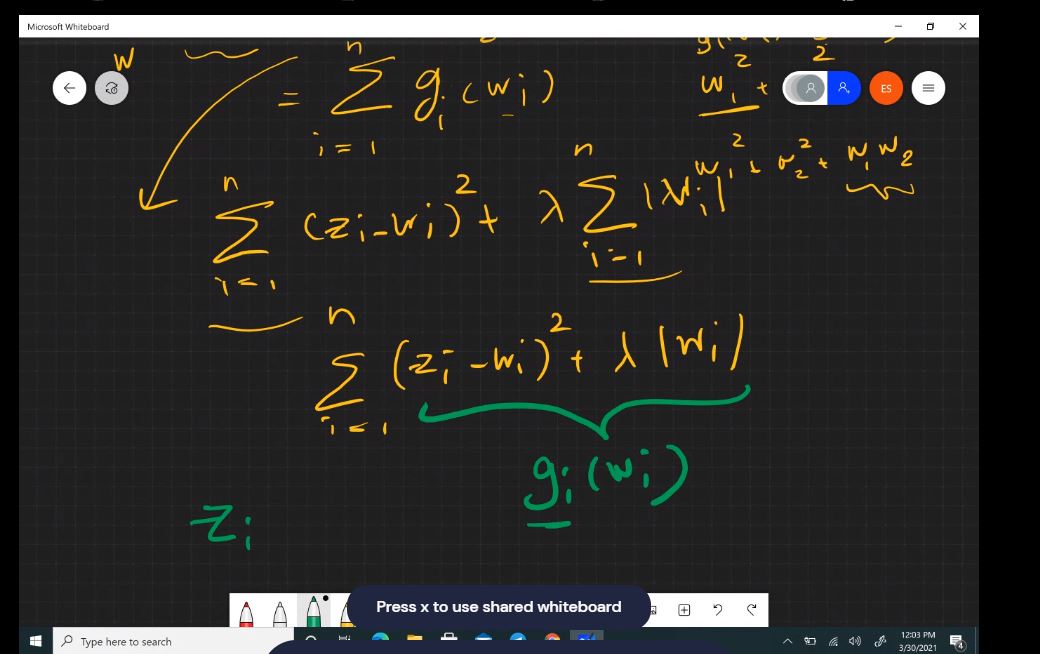 Microsoft Whiteboard
w
= \sum_{i=1}^{n} g_i(w_i)
w_1^2 +
ES
w_1^2 + w_2^2 + w_1 w_2
\sum_{i=1}^{n} (z_i - w_i)^2 + λ \sum_{i=1}^{n} |w_i|
\sum_{i=1}^{n} (z_i - w_i)^2 + λ |w_i|
g_i(w_i)
z_i
Press x to use shared whiteboard
Type here to search
12:03 PM
3/30/2021
4